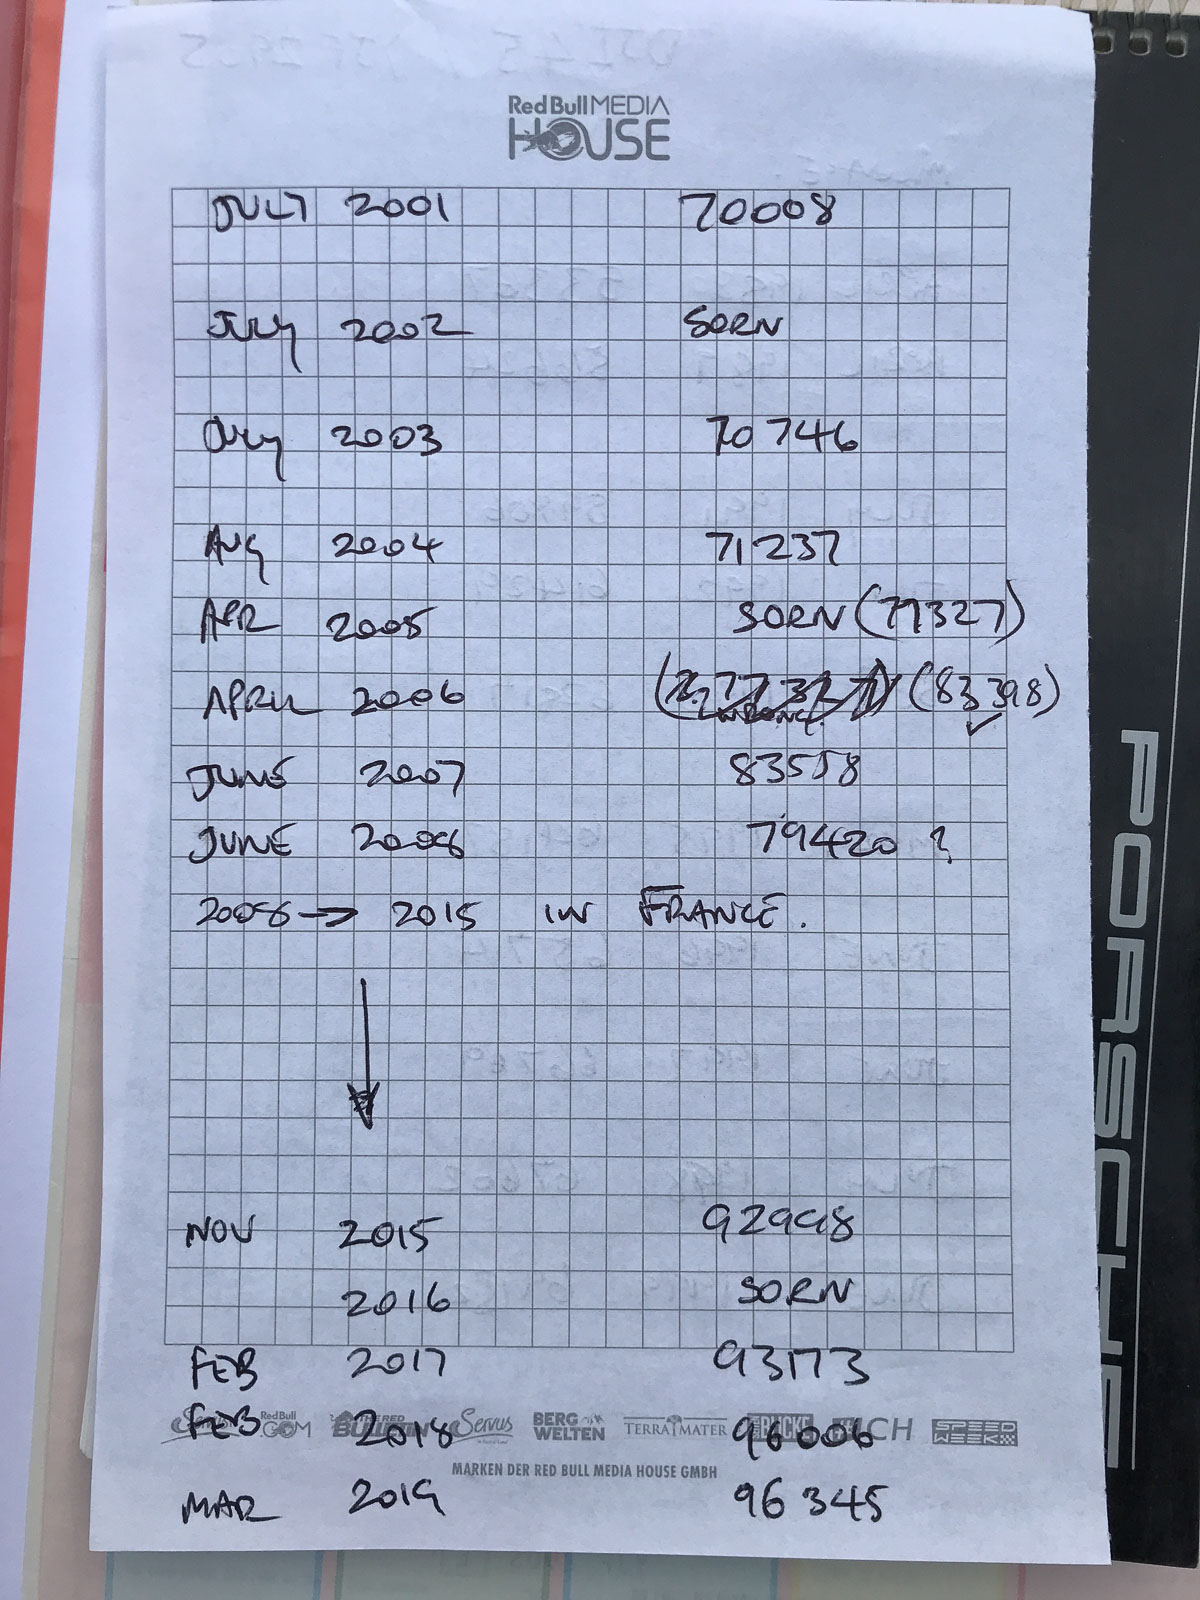 Red Bull MEDIA
HOUSE
JULY 2001 70008
JULY 2002 SORN
JULY 2003 70 746
AUG 2004 71237
APR 2005 SORN (77327)
APRIL 2006 (83398)
WRONG ✓
JUNE 2007 83558
JUNE 2008 79420 ?
2008 → 2015 IN FRANCE.
NOV 2015 92998
2016 SORN
FEB 2017 93173
FEB 2018 96006
Red Bull .COM THE RED BULLETIN Servus BERG WELTEN TERRA MATER SPEED WEEK
MARKEN DER RED BULL MEDIA HOUSE GMBH
MAR 2019 96 345
PORSCHE